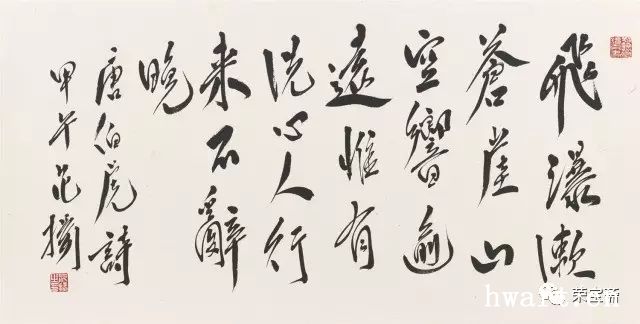 飛瀑漱
蒼崖山
空響逾
遠惟有
洗心人行
来不辭
晚
唐伯虎詩
甲午范揚
荣宝斋